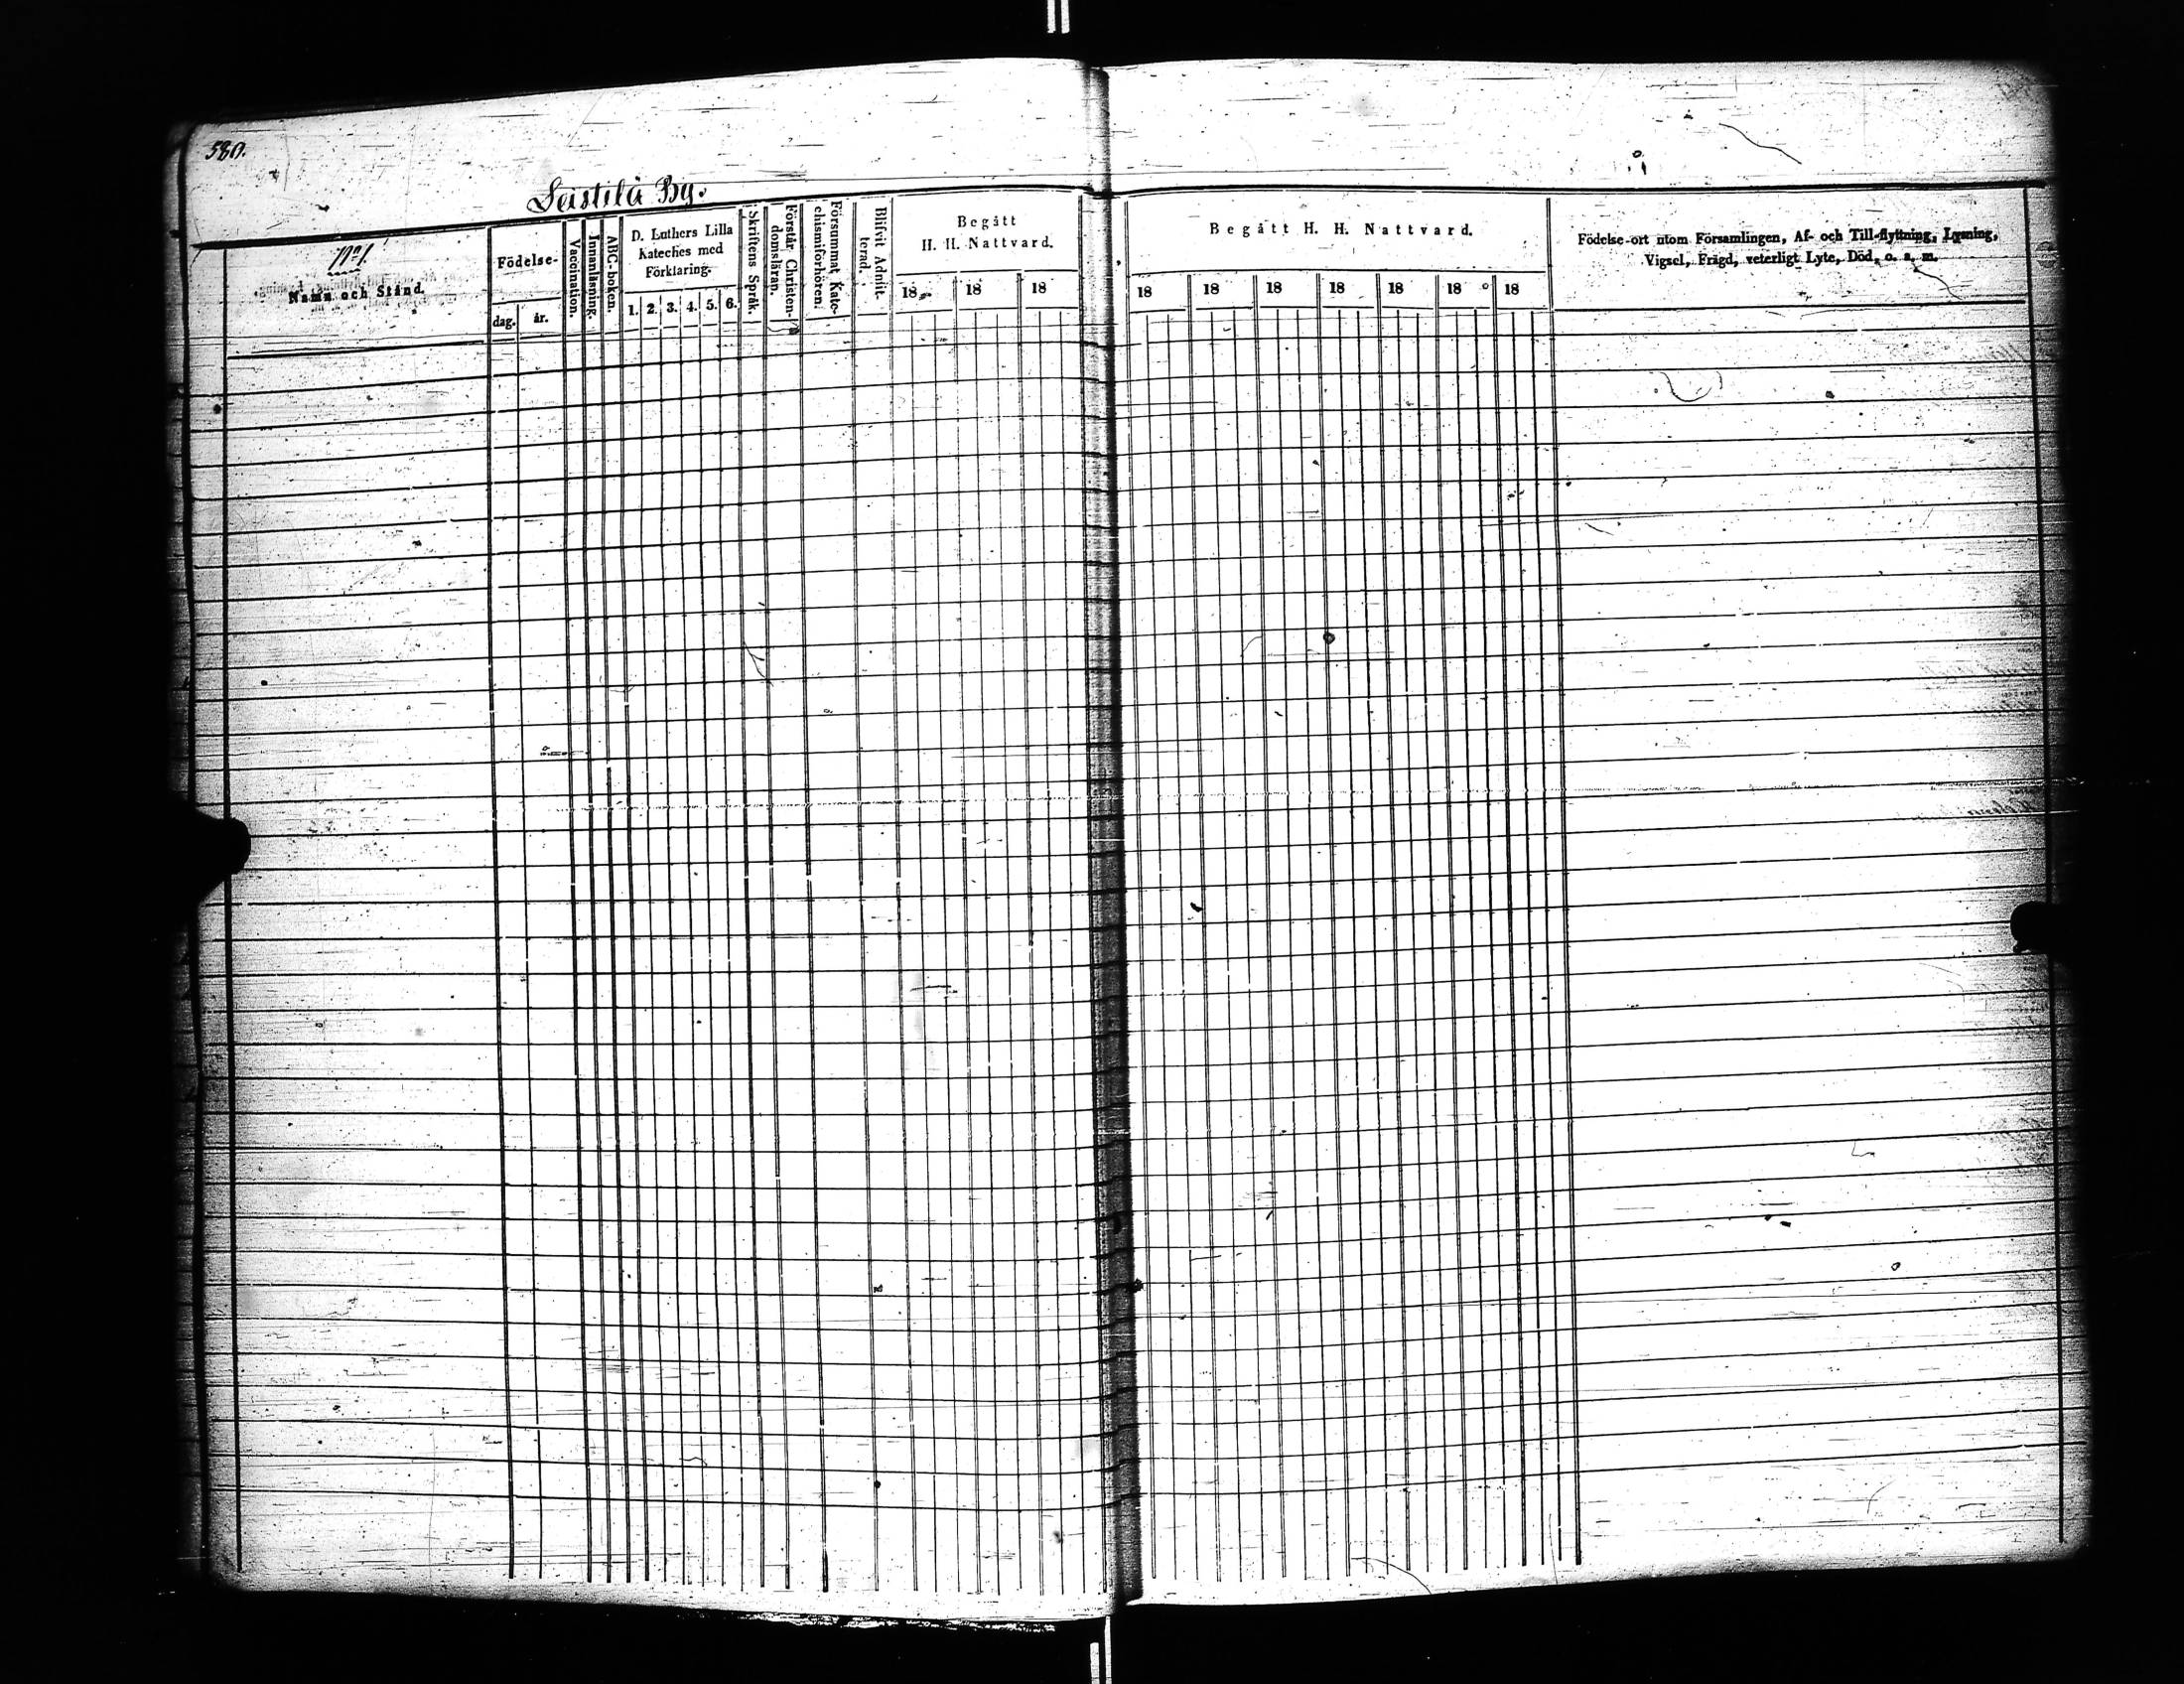 580.
Leistilä By.
N:o 1.
Namn och Stånd.
Födelse-
dag.
år.
Vaccination.
Innanläsning.
ABC-boken.
D. Luthers Lilla
Kateches med
Förklaring.
1. 2. 3. 4. 5. 6.
Skriftens Språk.
Förstår Christen-
domsläran.
Försummat Kate-
chismiförhören.
Blifvit Admit-
terad.
Begått
H. H. Nattvard.
18 18 18
Begått H. H. Nattvard.
18 18 18 18 18 18 18
Födelse-ort utom Församlingen, Af- och Till-flyttning, Lysning,
Vigsel, Frägd, veterligt Lyte, Död, o. s. m.